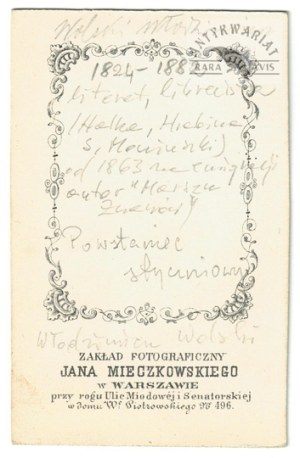 Wolski Włodz
ANTYKWARIAT
RARA AVIS
1824-188
literat, librecista
(Halka, Hrabina
S. Moniuszki)
od 1863 na emigracji
autor "Marsza
Żuawów"
Powstaniec
styczniowy
Włodzimierz Wolski
ZAKŁAD FOTOGRAFICZNY
JANA MIECZKOWSKIEGO
W WARSZAWIE
przy rogu Ulic Miodowéj i Senatorskiej
w domu Wº Piotrowskiego № 496.